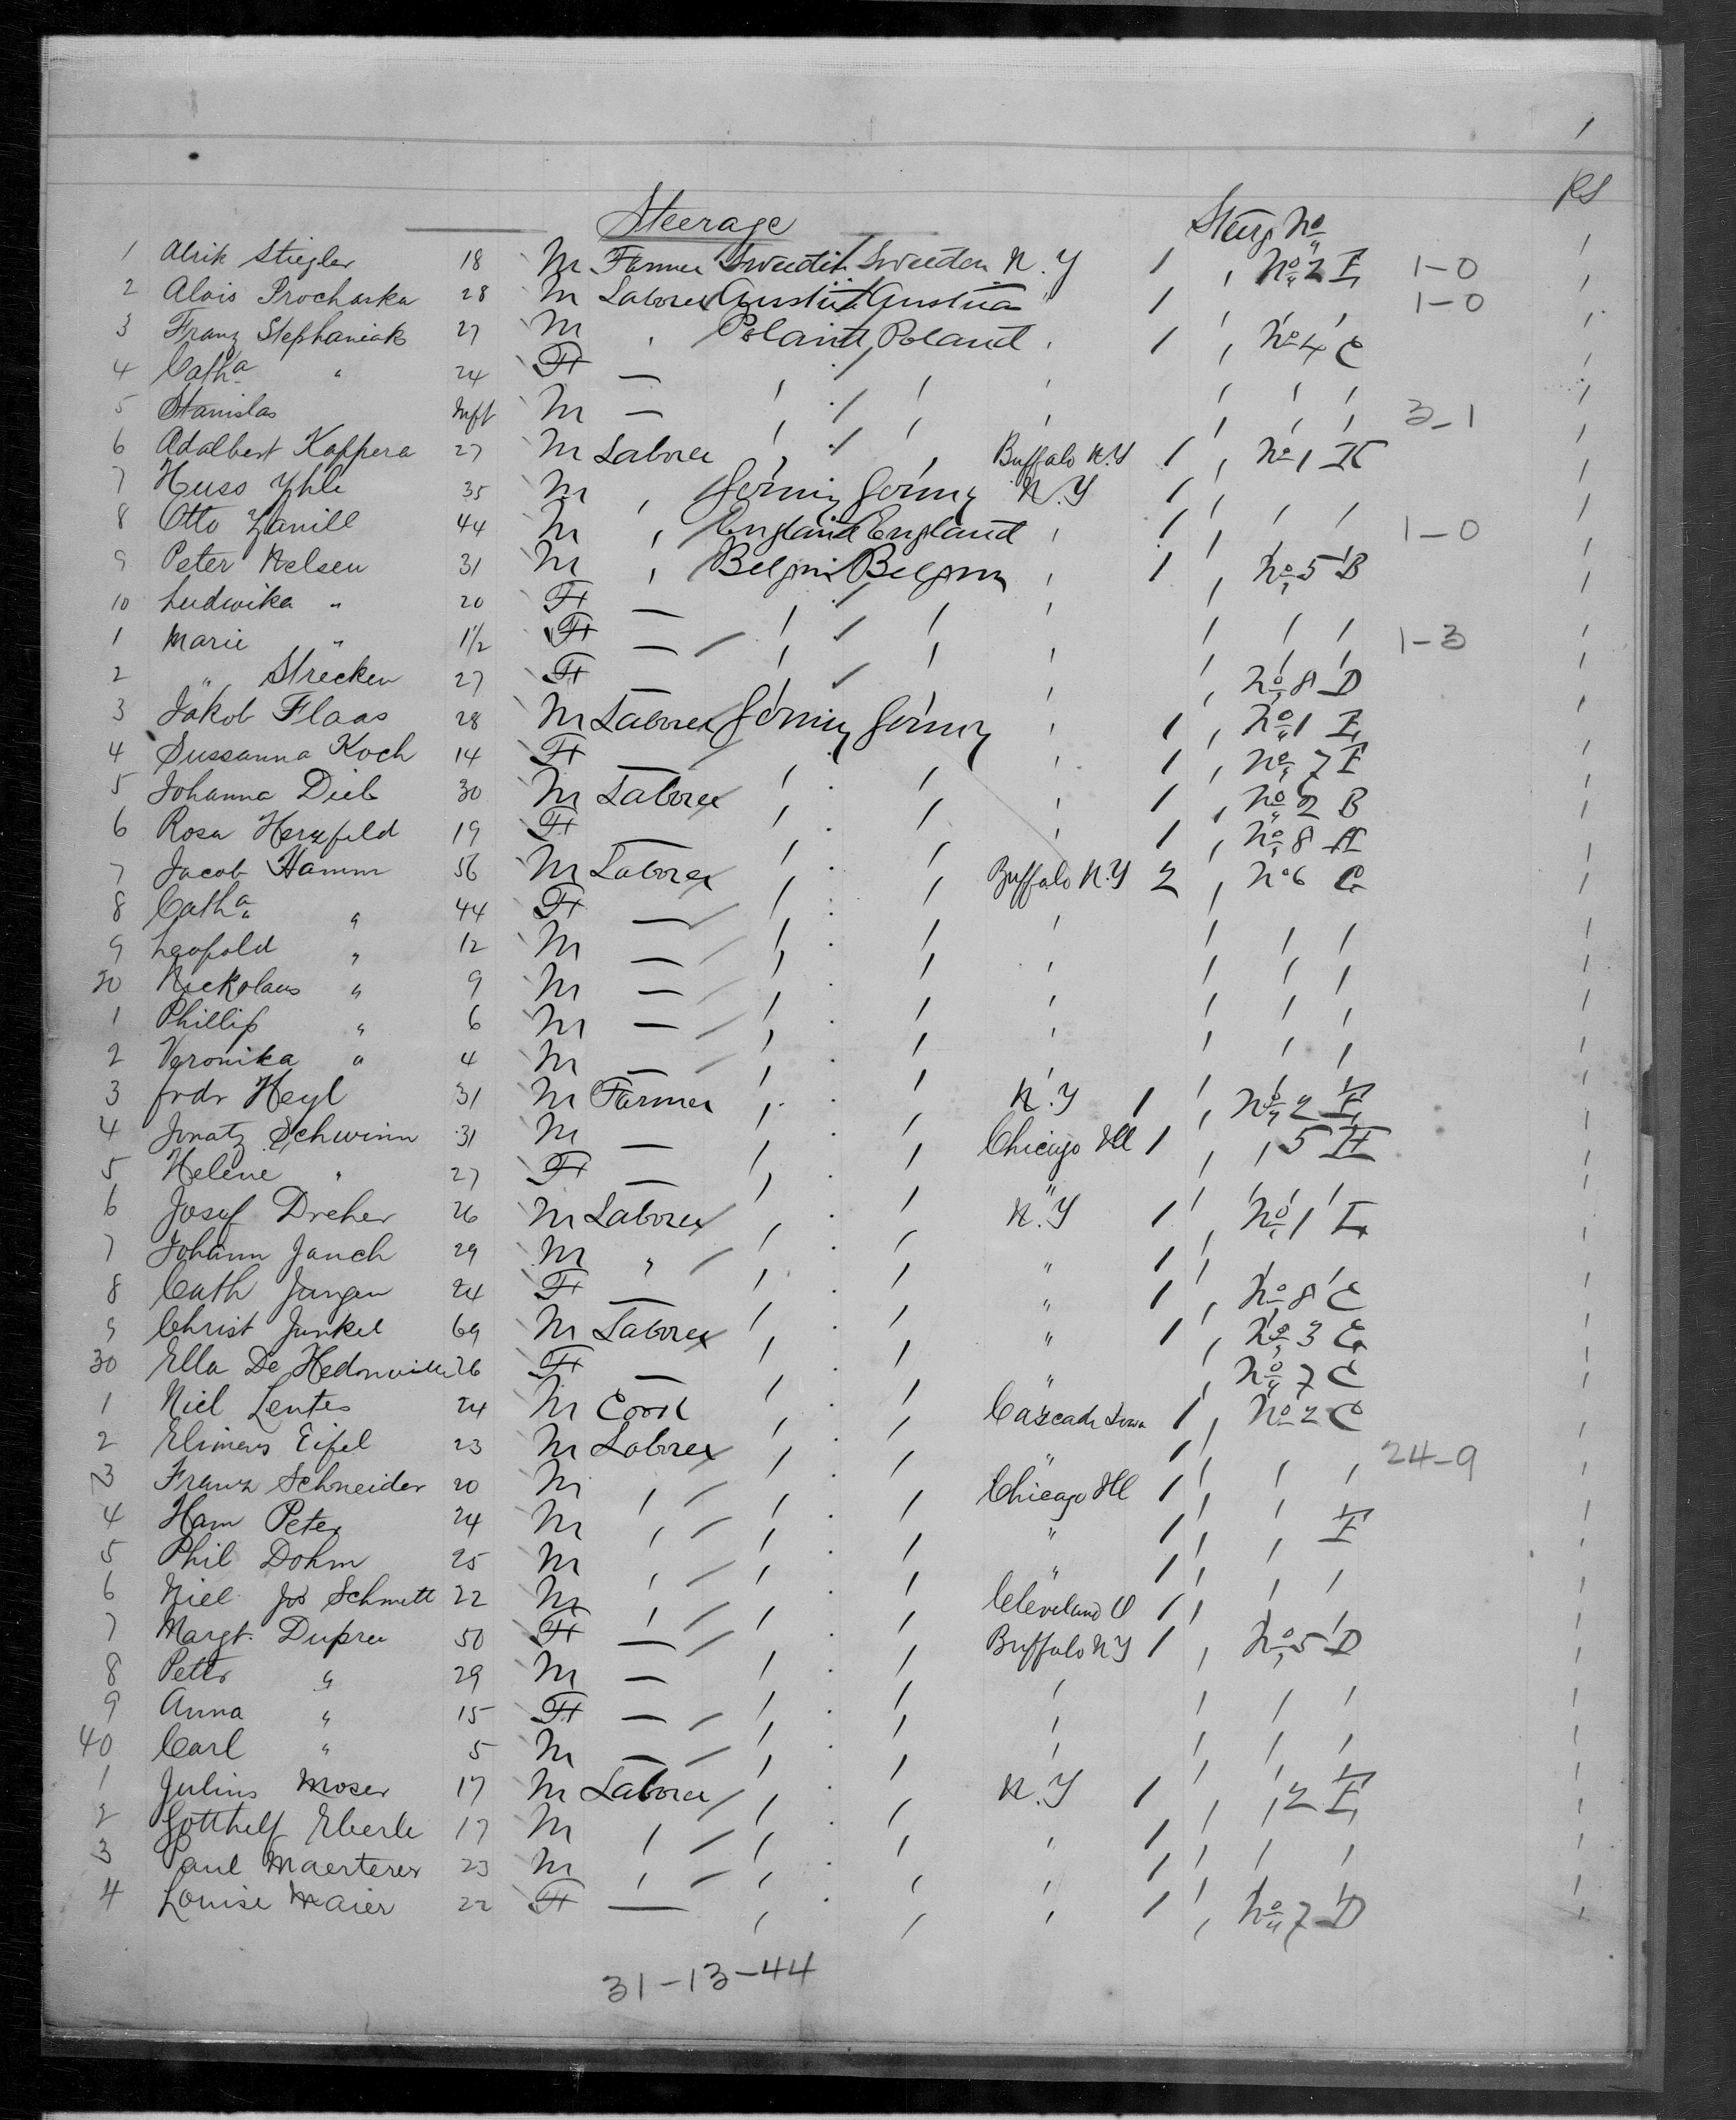 1
RS
Steerage Steerg No
1 Alrik Stiegler 18 M Farmer Sweden N.Y 1 , No 2 E 1-0
2 Alois Procharka 28 M Laborer Austria Austria " 1 1-0
3 Franz Stephaniak 27 M , Poland Poland , 1 , No 4 C
4 Catha " 24 F — , , ,
5 Stanislas Inft M — , , , 3-1
6 Adalbert Kappera 27 M Laborer , , Buffalo N.Y 1 , No 1 H
7 Huss Yhle 35 M , Germny Germny N.Y 1
8 Otto Zanill 44 M , England England , 1 1-0
9 Peter Nelsen 31 M , Belgm Belgm , 1 , No 5 B
10 Ludwika " 20 F — , , ,
1 Marie " 1 1/2 F — , , , 1-3
2 " Strecken 27 F — , , , , No 8 D
3 Jakob Flaas 28 M Laborer Germny Germny , 1 , No 1 E
4 Sussanna Koch 14 F — , , , 1 , No 7 E
5 Johanna Dieb 30 M Laborer , , , 1 , No 2 B
6 Rosa Herzfeld 19 F , , , 1 , No 8 H
7 Jacob Hamm 56 M Laborer , , Buffalo N.Y 2 , No 6 C
8 Catha " 44 F — , , ,
9 Leopold " 12 M — , , ,
20 Nickolaus " 9 M — , , ,
1 Phillip " 6 M — , , ,
2 Veronika " 4 M — , , ,
3 frdr Heyl 31 M Farmer , , N.Y 1 , No 2 E
4 Jnatz Schwinn 31 M — , , Chicago Ill 1 , , 5 H
5 Helene " 27 F — , , "
6 Josef Dreher 26 M Laborer , , N.Y 1 , No 1 E
7 Johann Janch 29 M " , , " 1
8 Cath Jungen 24 F — , , " 1 , No 8 C
9 Christ Junkel 69 M Laborer , , " 1 , No 3 C
30 Ella De Hedonville 26 F — , , " , No 7 C
1 Niel Lentes 24 M Cook , , Cascade Iowa 1 , No 2 C
2 Elimens Eifel 23 M Laborer , , " 1 24-9
3 Franz Schneider 20 M , , , Chicago Ill 1
4 Ham Peter 24 M , , , " 1 E
5 Phil Dohm 25 M , , , " 1
6 Niel Jos Schmitt 22 M , , , Cleveland O 1
7 Margt. Dupree 50 F — , , Buffalo N Y 1 , No 5 D
8 Peter " 29 M — , , ,
9 Anna " 15 F — , , ,
40 Carl " 5 M — , , ,
1 Julius Moser 17 M Laborer , , N.Y 1 , , 2 E
2 Gotthelf Eberle 17 M , , , " 1
3 Paul Maerterer 23 M , , , , 1
4 Louise Maier 22 F — , , , 1 , No 7 D
31-13-44